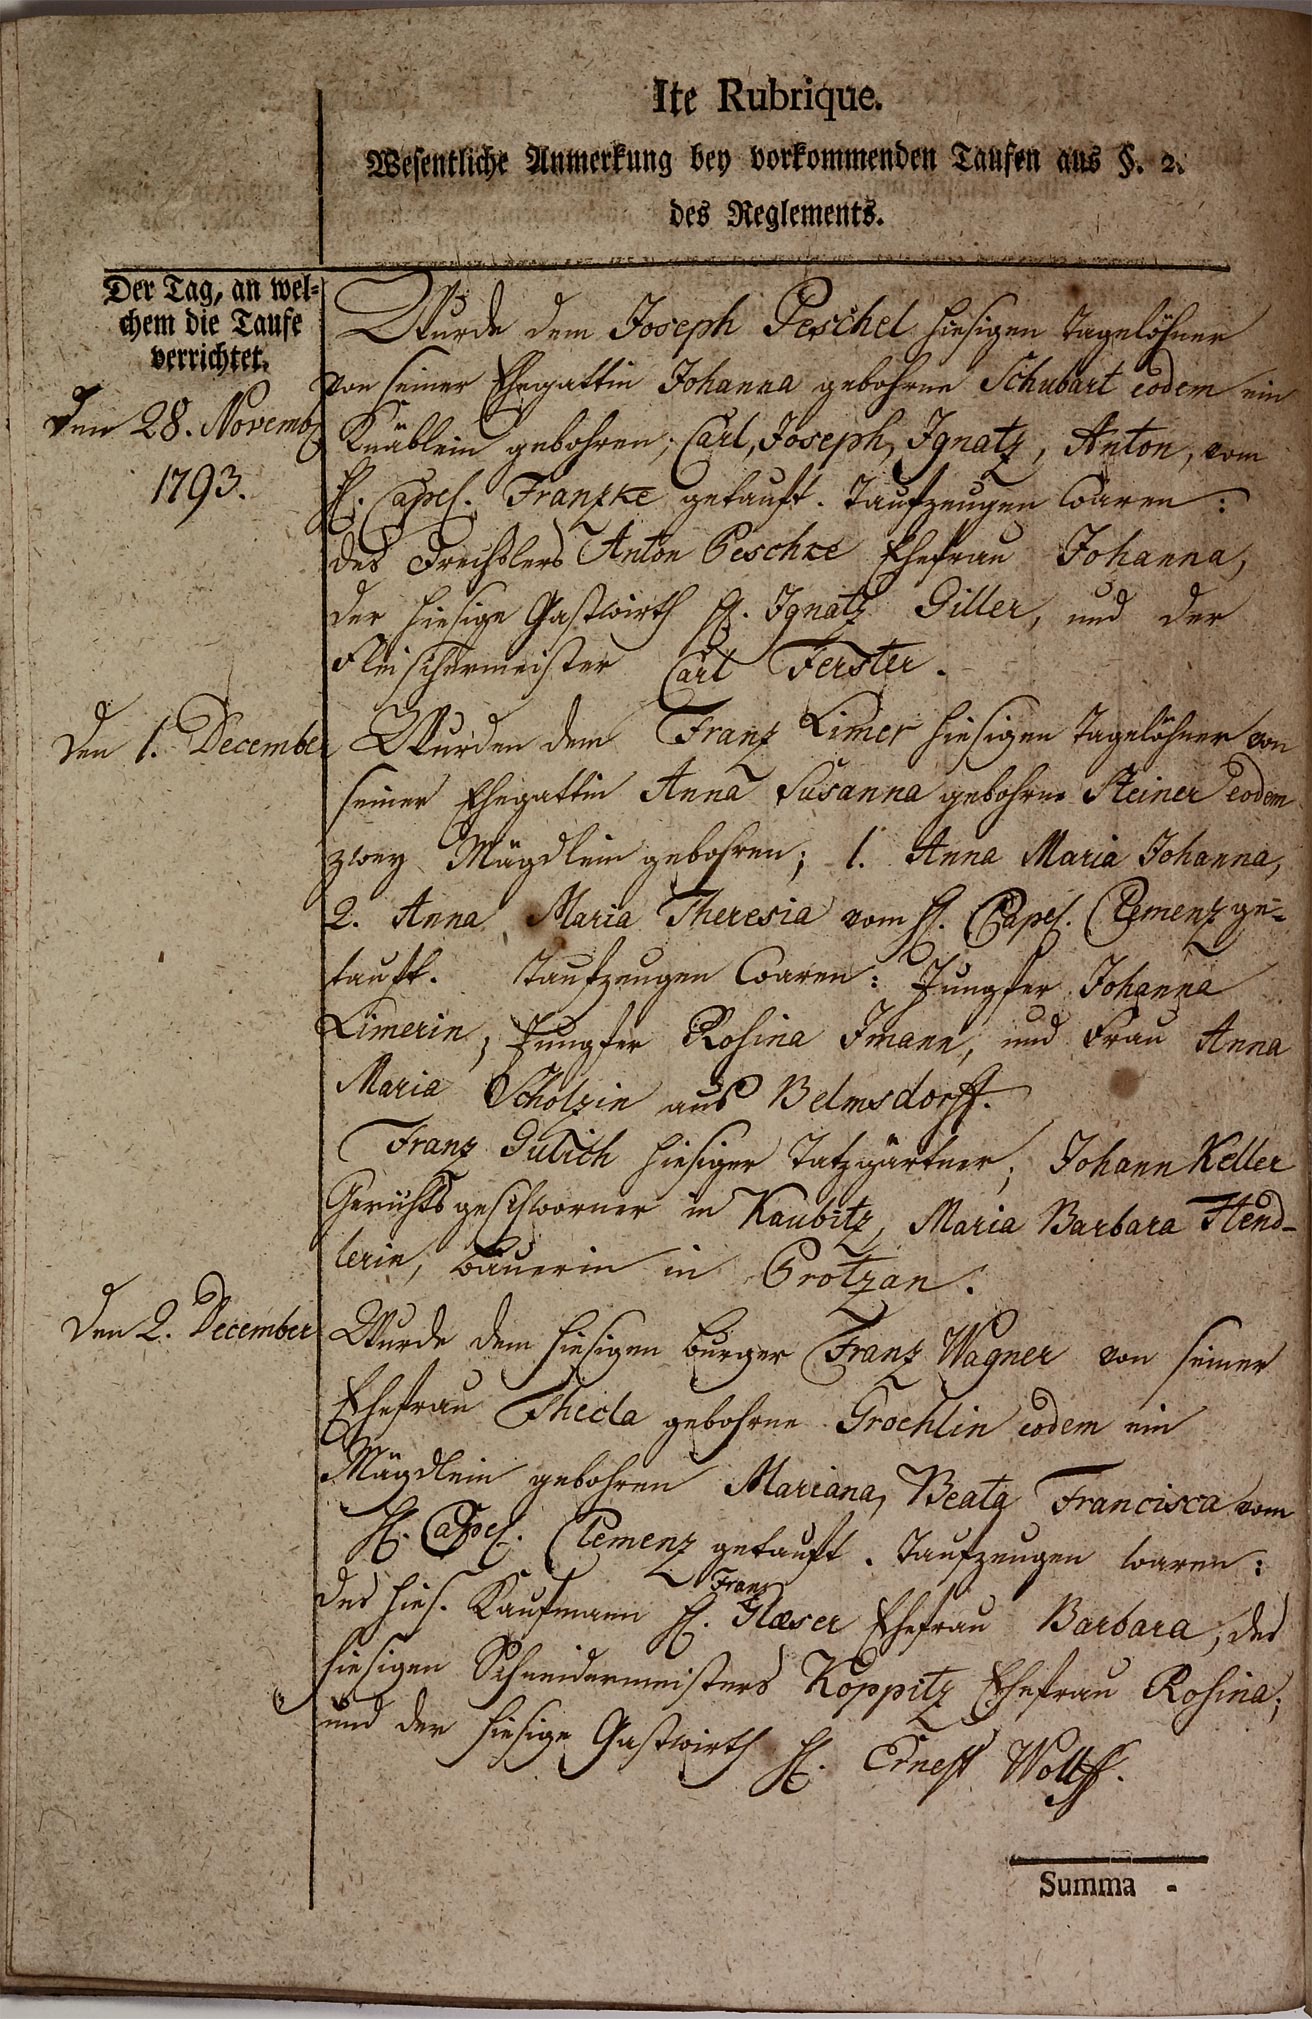 Ite Rubrique.
Wesentliche Anmerkung bey vorkommenden Taufen aus §. 2.
des Reglements.
Der Tag, an wel-
chem die Taufe
verrichtet.
Den 28. Novemb
1793.
Wurde dem Joseph Peschel hiesigen Tagelöhner
von seiner Ehegattin Johanna gebohrne Schubart eodem ein
Knäblein gebohren; Carl, Joseph, Ignatz, Anton, vom
H. Capel. Franzke getauft. Taufzeugen waren:
des Drechslers Anton Peschke Ehefrau Johanna,
der hiesige Gastwirth H. Ignatz Giller, und der
Fleischermeister Carl Ferster.
Den 1. December
Wurden dem Franz Limer hiesigen Tagelöhner von
seiner Ehegattin Anna Susanna gebohrne Steiner eodem
zwey Mägdlein gebohren; 1. Anna Maria Johanna,
2. Anna Maria Theresia vom H. Capel. Clemenz ge-
tauft. Taufzeugen waren: Jungfer Johanna
Limerin, Jungfer Rosina Imann, und Frau Anna
Maria Scholzin aus Belmsdorff.
Franz Gulich hiesiger Tatzgärtner; Johann Keller
Gerichtsgeschworner in Kaubitz, Maria Barbara Hend-
lerin, Bäuerin in Protzan.
Den 2. December
Wurde dem hiesigen Burger Franz Wagner von seiner
Ehefrau Thecla gebohrne Grochlin eodem ein
Mägdlein gebohren Mariana, Beata Francisca vom
H. Capel. Clemenz getauft. Taufzeugen waren:
des hies. Kaufmann H. Franz Glæser Ehefrau Barbara, des
hiesigen Schneidermeisters Koppitz Ehefrau Rosina;
und der hiesige Gastwirth H. Ernest Wolff.
Summa -